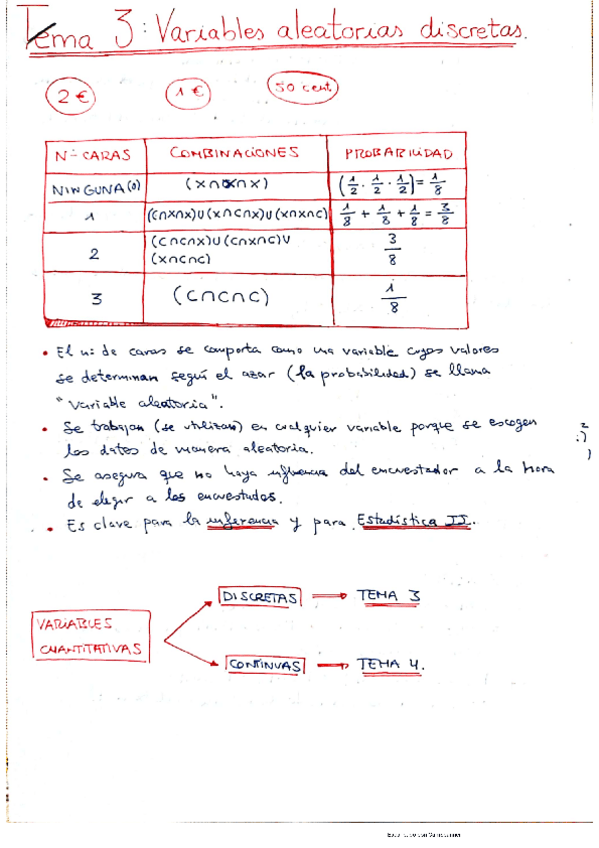 Tema 3: Variables aleatorias discretas.
2 € 1 € 50 cent.
Nº CARAS COMBINACIONES PROBABILIDAD
NINGUNA (0) (x∩x∩x) (1/2 · 1/2 · 1/2) = 1/8
1 (c∩x∩x)∪(x∩c∩x)∪(x∩x∩c) 1/8 + 1/8 + 1/8 = 3/8
2 (c∩c∩x)∪(c∩x∩c)∪ 3/8
(x∩c∩c)
3 (c∩c∩c) 1/8
• El nº de caras se comporta como una variable cuyos valores
se determinan según el azar (la probabilidad) se llama
"variable aleatoria".
• Se trabajan (se utilizan) en cualquier variable porque se escogen
los datos de manera aleatoria.
• Se asegura que no haya influencia del encuestador a la hora
de elegir a los encuestados.
• Es clave para la inferencia y para Estadística II.
VARIABLES
CUANTITATIVAS
DISCRETAS → TEMA 3
CONTINUAS → TEMA 4.